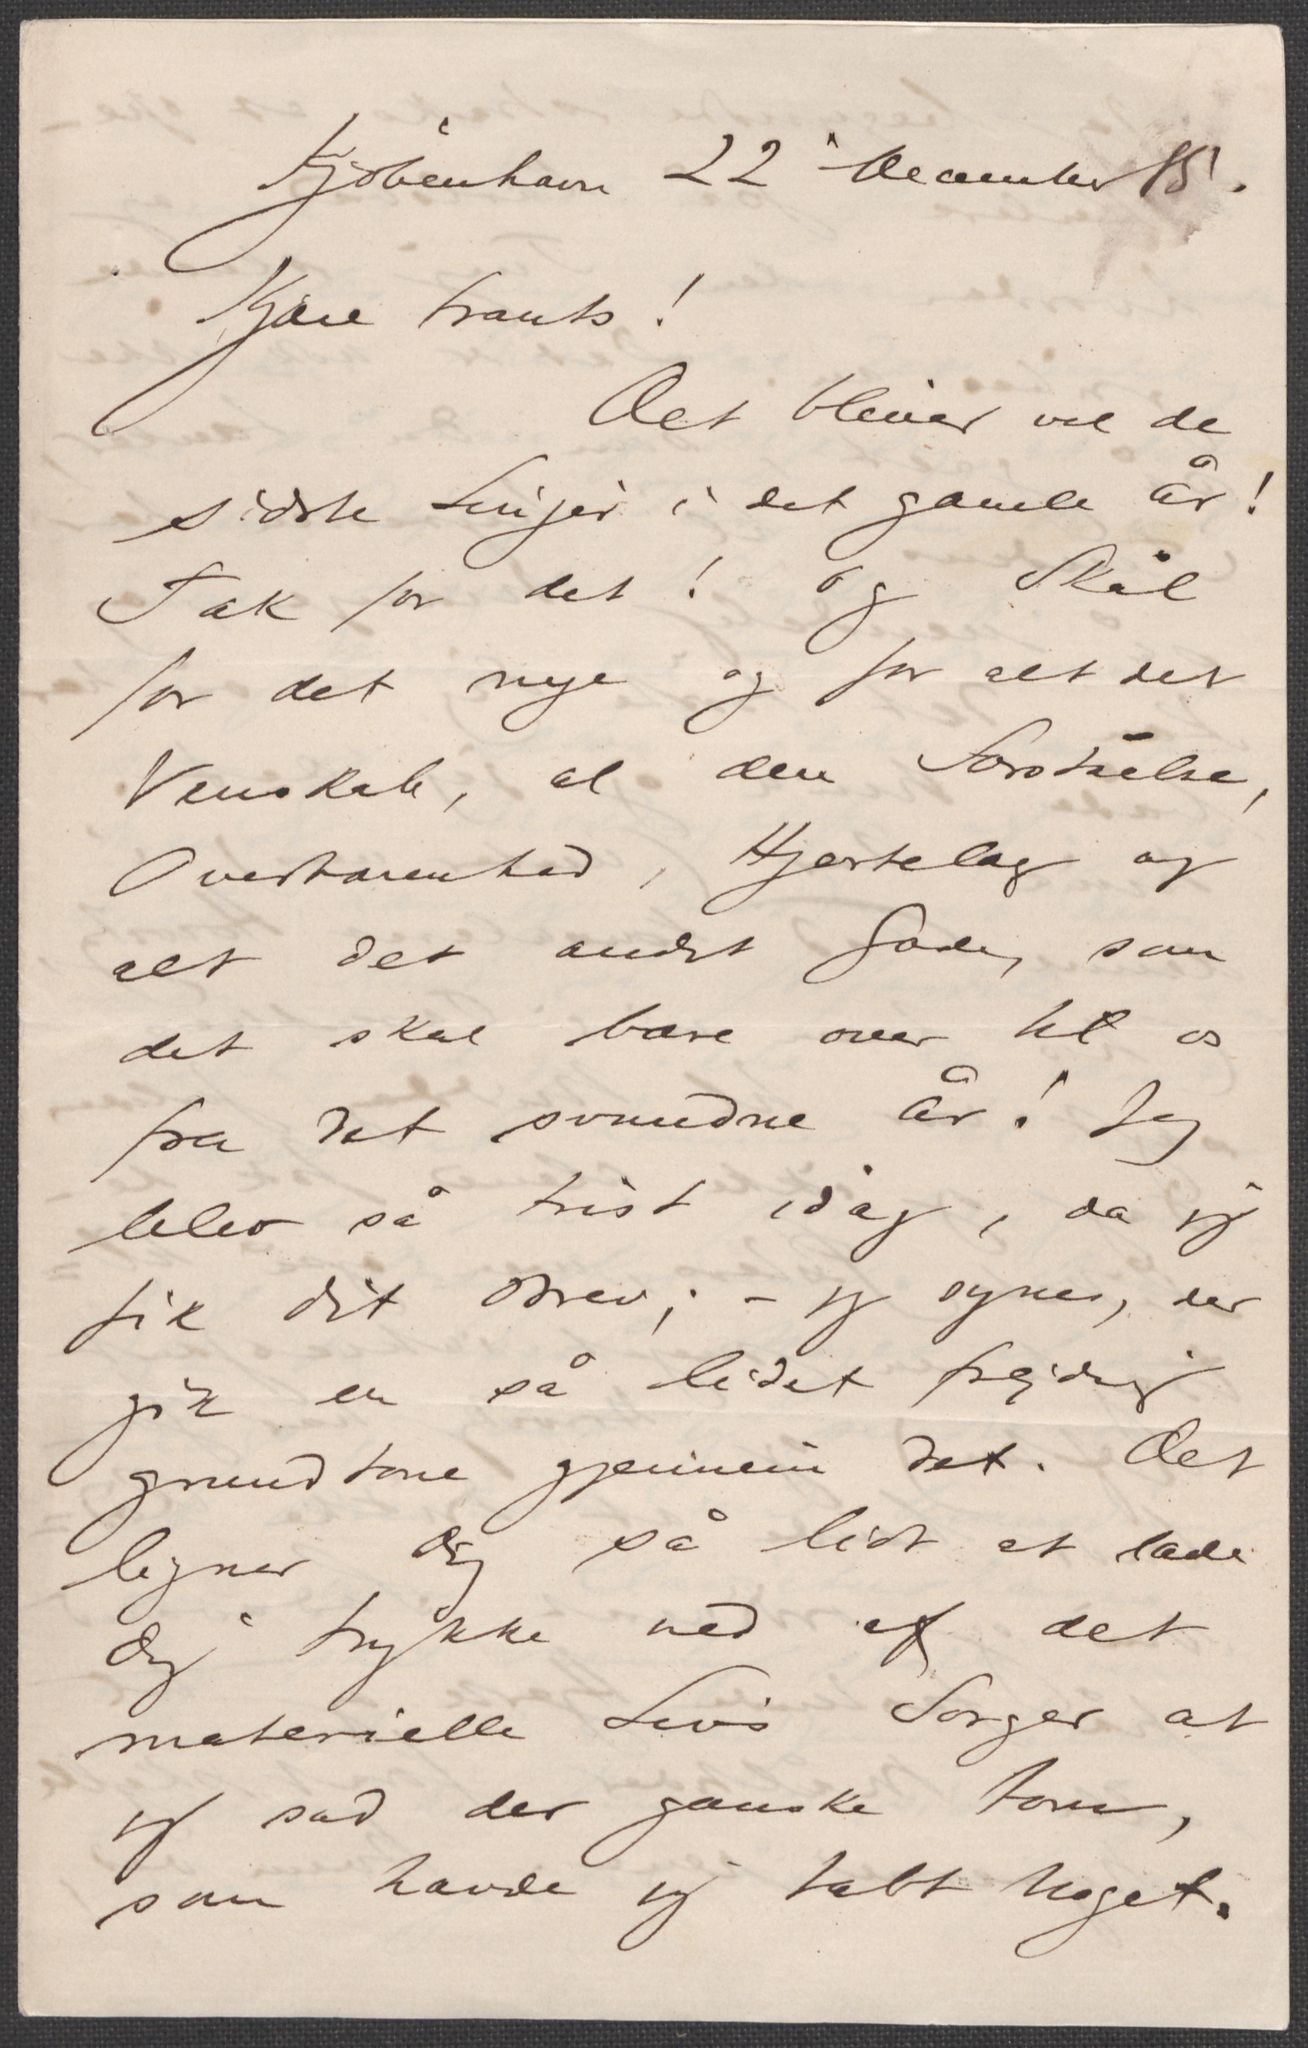 Kjöbenhavn 22 December 85.
Kjære Frants!
Det bliver vel de
sidste Linjer i det gamle År!
Tak for det! og Skål
for det nye og for alt det
Venskab, al den Forståelse,
Overbærenhed, Hjertelag og
alt det andet Gode, som
det skal bære over til os
fra det svundne År! Jeg
blev så trist idag, da jeg
fik dit Brev; – jeg synes, der
gik en så lidet frejdig
grundtone gjennem det. Det
ligner dig så lidt at lade
dig trykke ned af det
materielle Livs Sorger at
jeg sad der ganske tom,
som havde jeg tabt Noget.